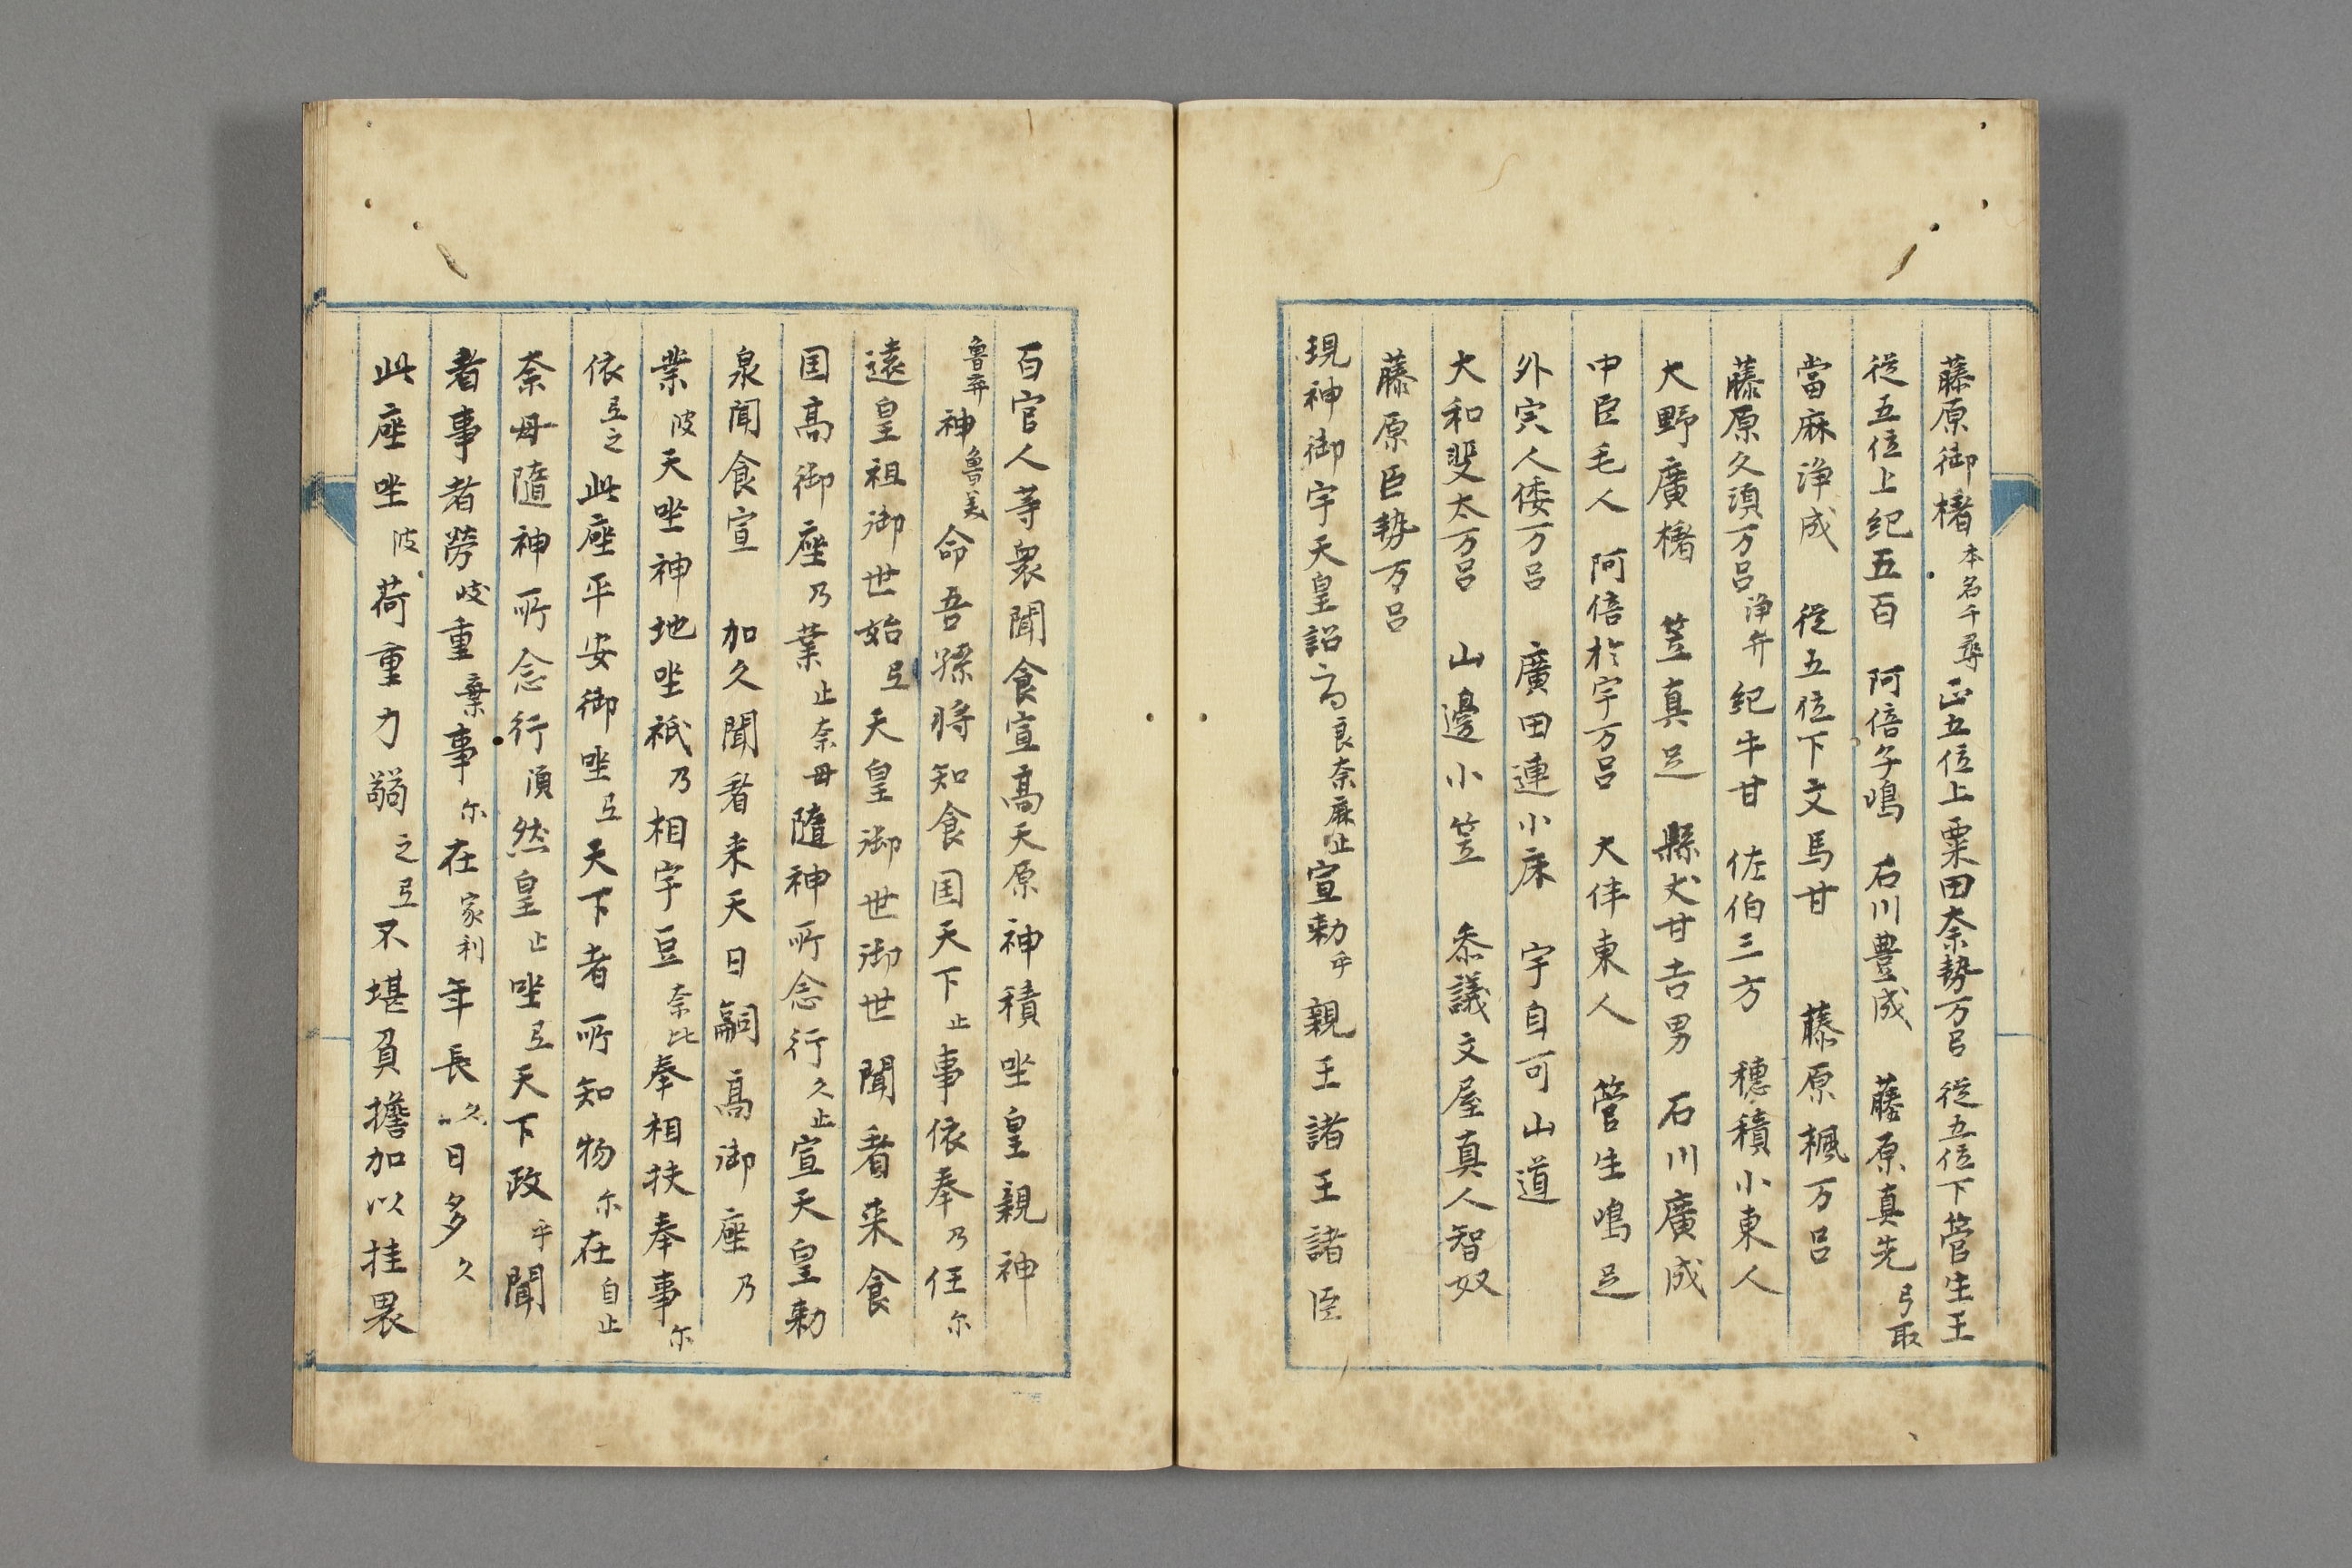 藤原御楮本名千尋正五位上粟田奈勢万呂 従五位下菅生王
従五位上紀五百 阿倍子嶋 石川豊成 藤原真先弓取
當麻浄成 従五位下文馬甘 藤原楓万呂
藤原久須万呂浄弁 紀牛甘 佐伯三方 穂積小東人
大野廣楮 笠真足 縣犬甘吉男 石川廣成
中臣毛人 阿倍於宇万呂 大伴東人 菅生嶋足
外宍人倭万呂 廣田連小床 宇自可山道
大和斐太万呂 山邊小笠 叅議文屋真人智奴
藤原臣勢万呂
現神御宇天皇詔良奈麻止宣勅乎 親王諸王諸臣
百官人等衆聞食宣高天原神積坐皇親神
魯弃神魯美命吾孫将知食国天下止事依奉乃任尓
遠皇祖御世始弖天皇御世世御世聞看来食
国高御座乃業止奈母隨神所念行久止宣天皇勅
衆聞食宣 加久聞看来天日嗣高御座乃
業波天坐神地坐祇乃相宇豆奈比奉相扶奉事尓
依弖之此座平安御坐弖天下者所知物尓在自止
奈母隨神所念行須然皇止坐弖天下政乎聞
看事者労岐重棄事尓在家利年長久日多久
此座坐波荷重力弱之弖不堪負擔加以挂畏